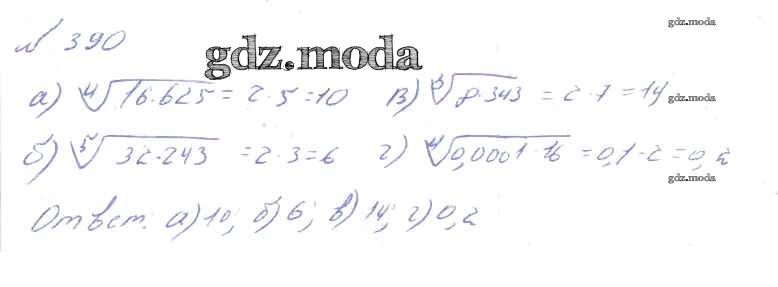 gdz.moda
№ 390
gdz.moda
а) ∜16·625 = 2·5 = 10 в) ∛8·343 = 2·7 = 14 gdz.moda
б) ⁵√32·243 = 2·3 = 6 г) ∜0,0001·16 = 0,1·2 = 0,2
gdz.moda
Ответ: а) 10; б) 6; в) 14; г) 0,2